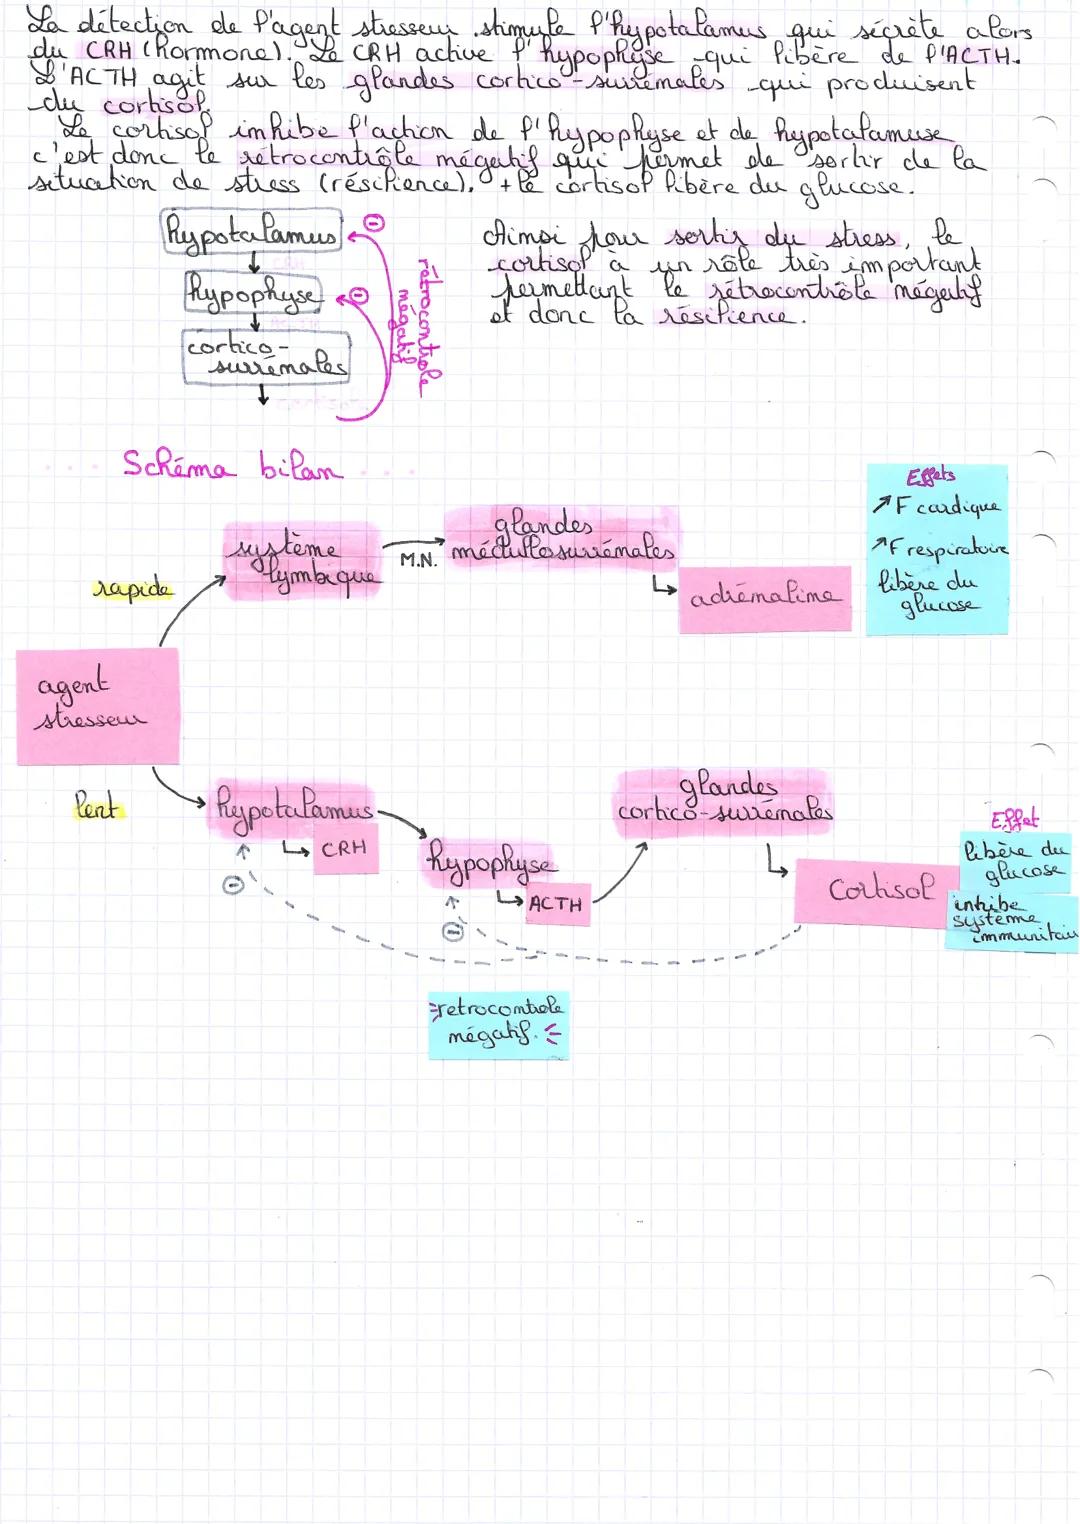 La détection de l'agent stresseur stimule l'hypotalamus qui sécrète alors
du CRH (hormone). Le CRH active l'hypophyse qui libère de l'ACTH.
L'ACTH agit sur les glandes cortico-surrénales qui produisent
du cortisol.
Le cortisol inhibe l'action de l'hypophyse et de hypotalamuse
c'est donc le rétrocontrôle négatif qui permet de sortir de la
situation de stress (résilience). + le cortisol libère du glucose.
hypotalamus
hypophyse
cortico-
surrénales
rétrocontrole
négatif
Ainsi pour sortir du stress, le
cortisol à un rôle très important
permettant le rétrocontrôle négatif
et donc la résilience.
Schéma bilan
Effets
↗F cardique
↗F respiratoire
libère du
glucose
système
lymbique
M.N.
glandes
médullosurrénales
rapide
adrénaline
agent
stresseur
lent
hypotalamus
CRH
hypophyse
ACTH
glandes
cortico-surrénales
Cortisol
Effet
libère du
glucose
inhibe
système
immunitair
retrocontrole
négatif.